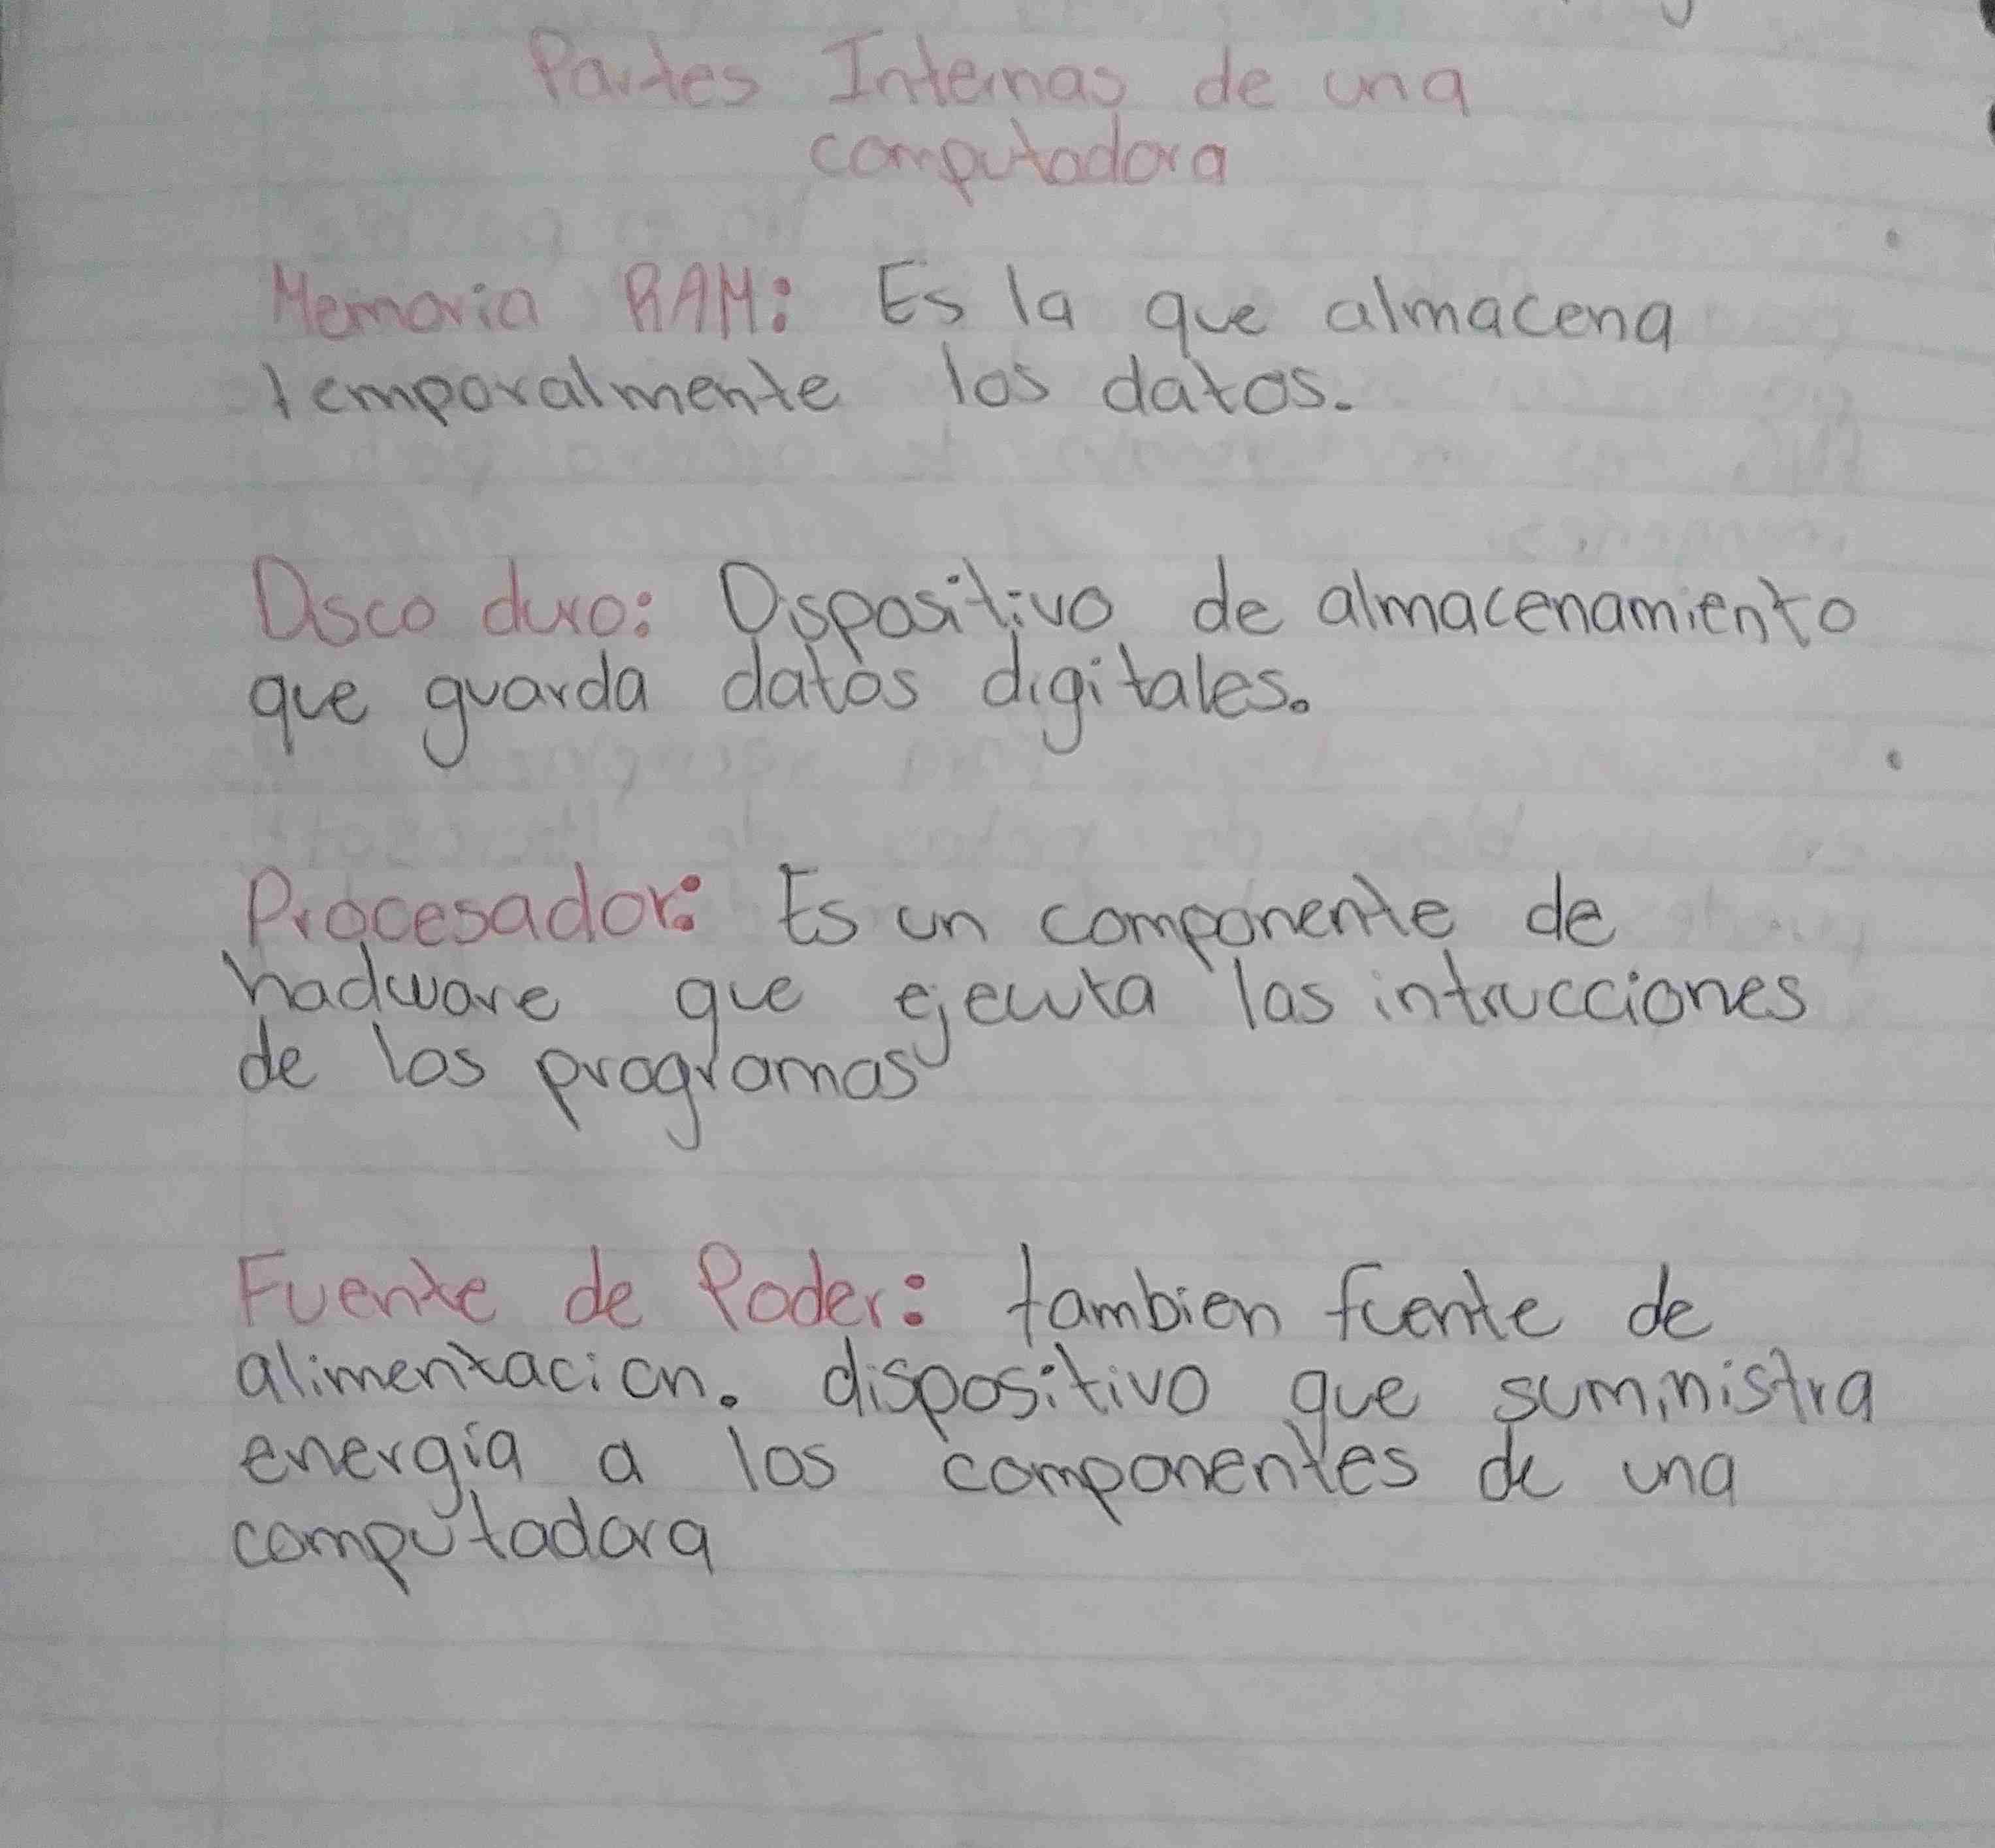 Partes Internas de una
computadora
Memoria RAM: Es la que almacena
temporalmente los datos.
Disco duro: Dispositivo de almacenamiento
que guarda datos digitales.
Procesador: Es un componente de
hadware que ejecuta las intrucciones
de los programas
Fuente de Poder: tambien fuente de
alimentacion. dispositivo que suministra
energía a los componentes de una
computadora